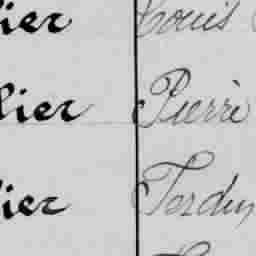 lier Louis
lier Pierre
lier Ferdin